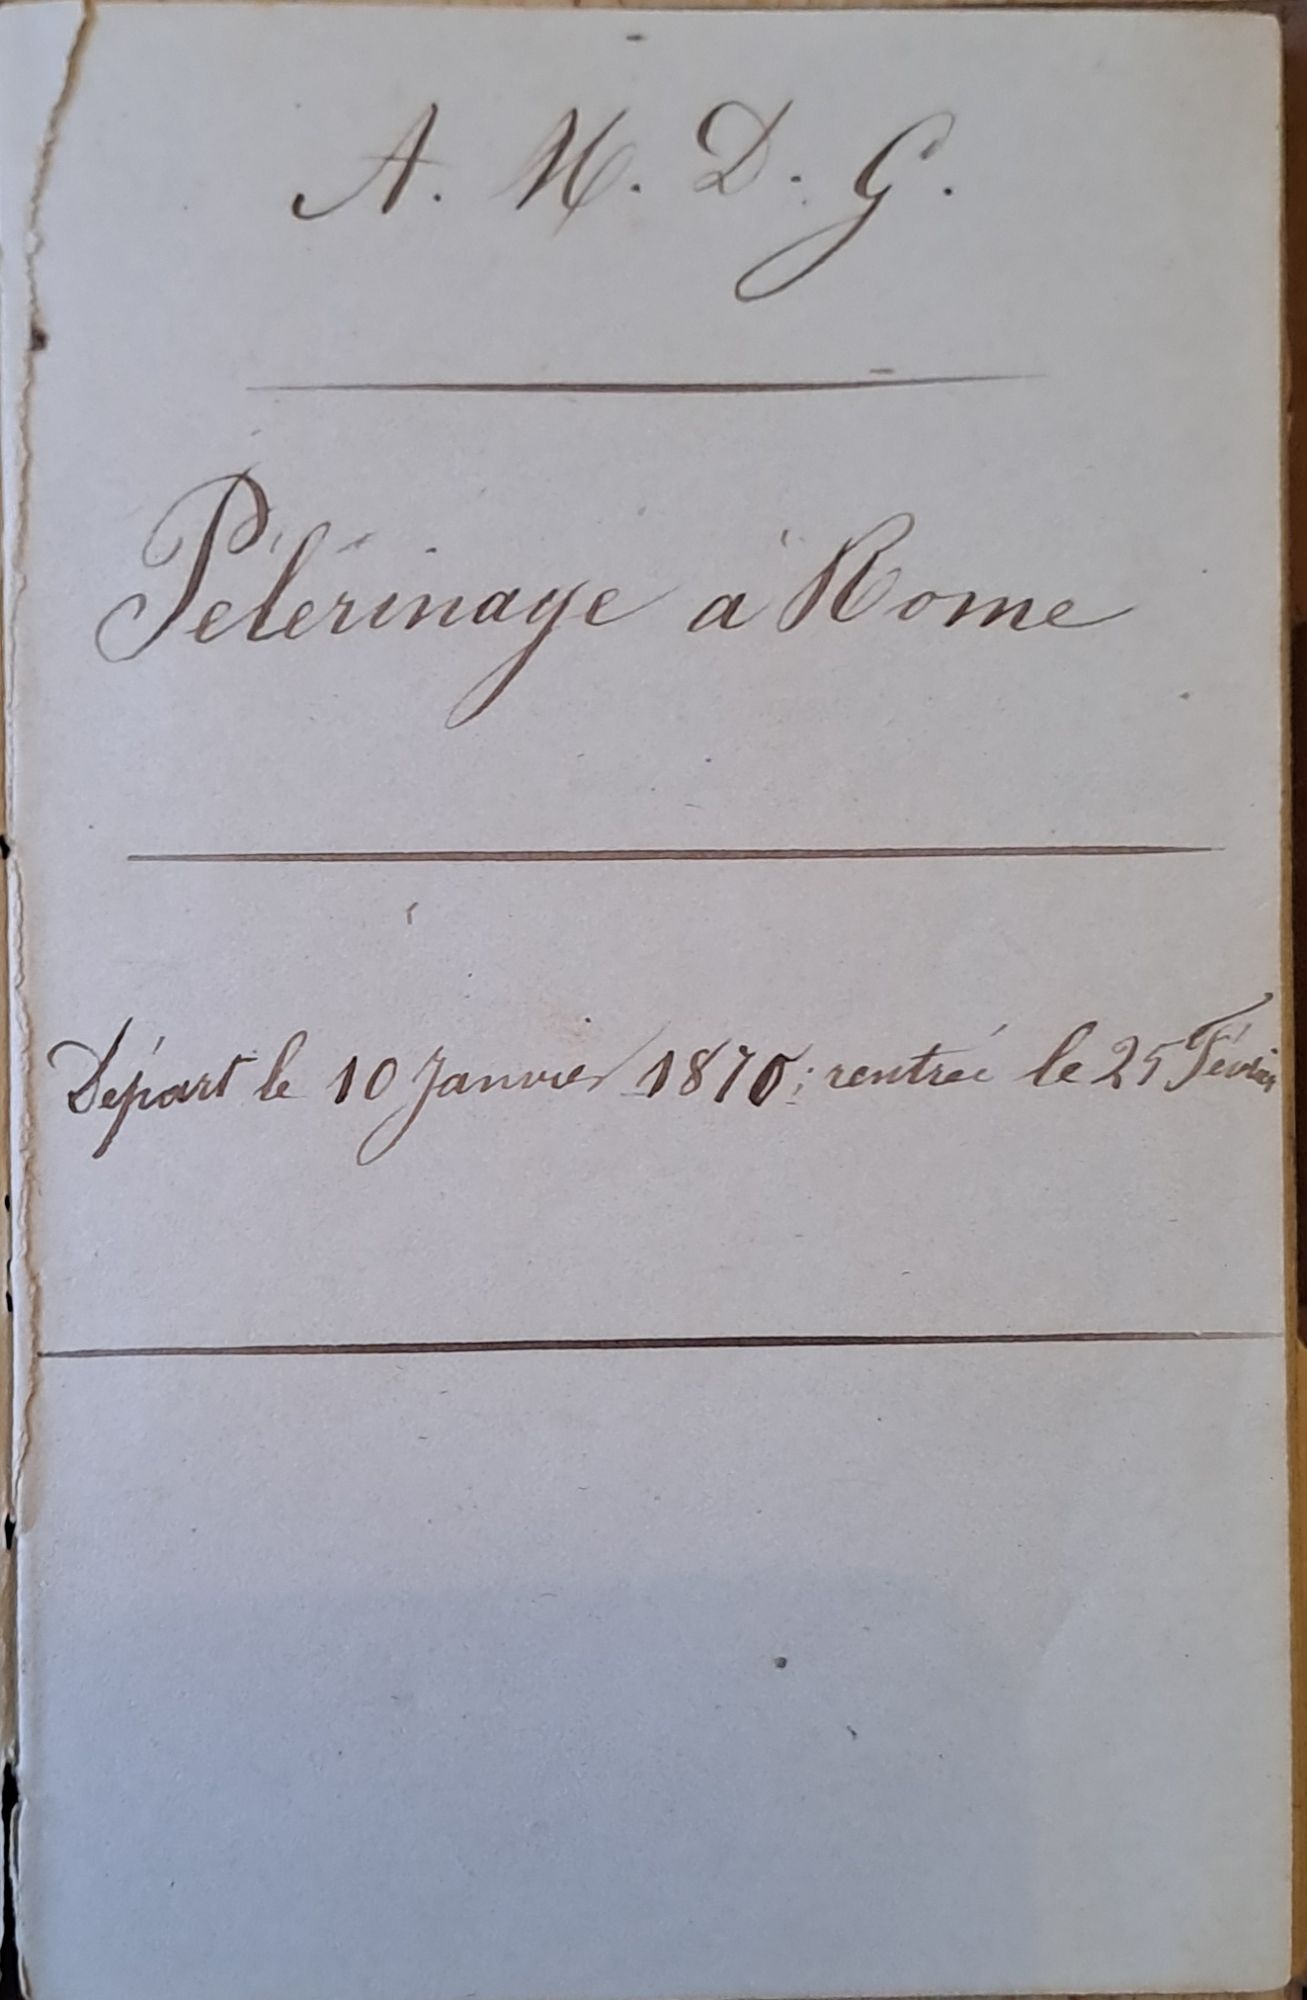 A. M. D. G.
Pélérinage à Rome
Départ le 10 Janvier 1870; rentrée le 25 Février